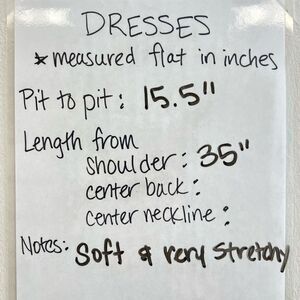 DRESSES
* measured flat in inches
Pit to pit: 15.5"
Length from
shoulder: 35"
center back:
center neckline:
Notes: Soft & very stretchy